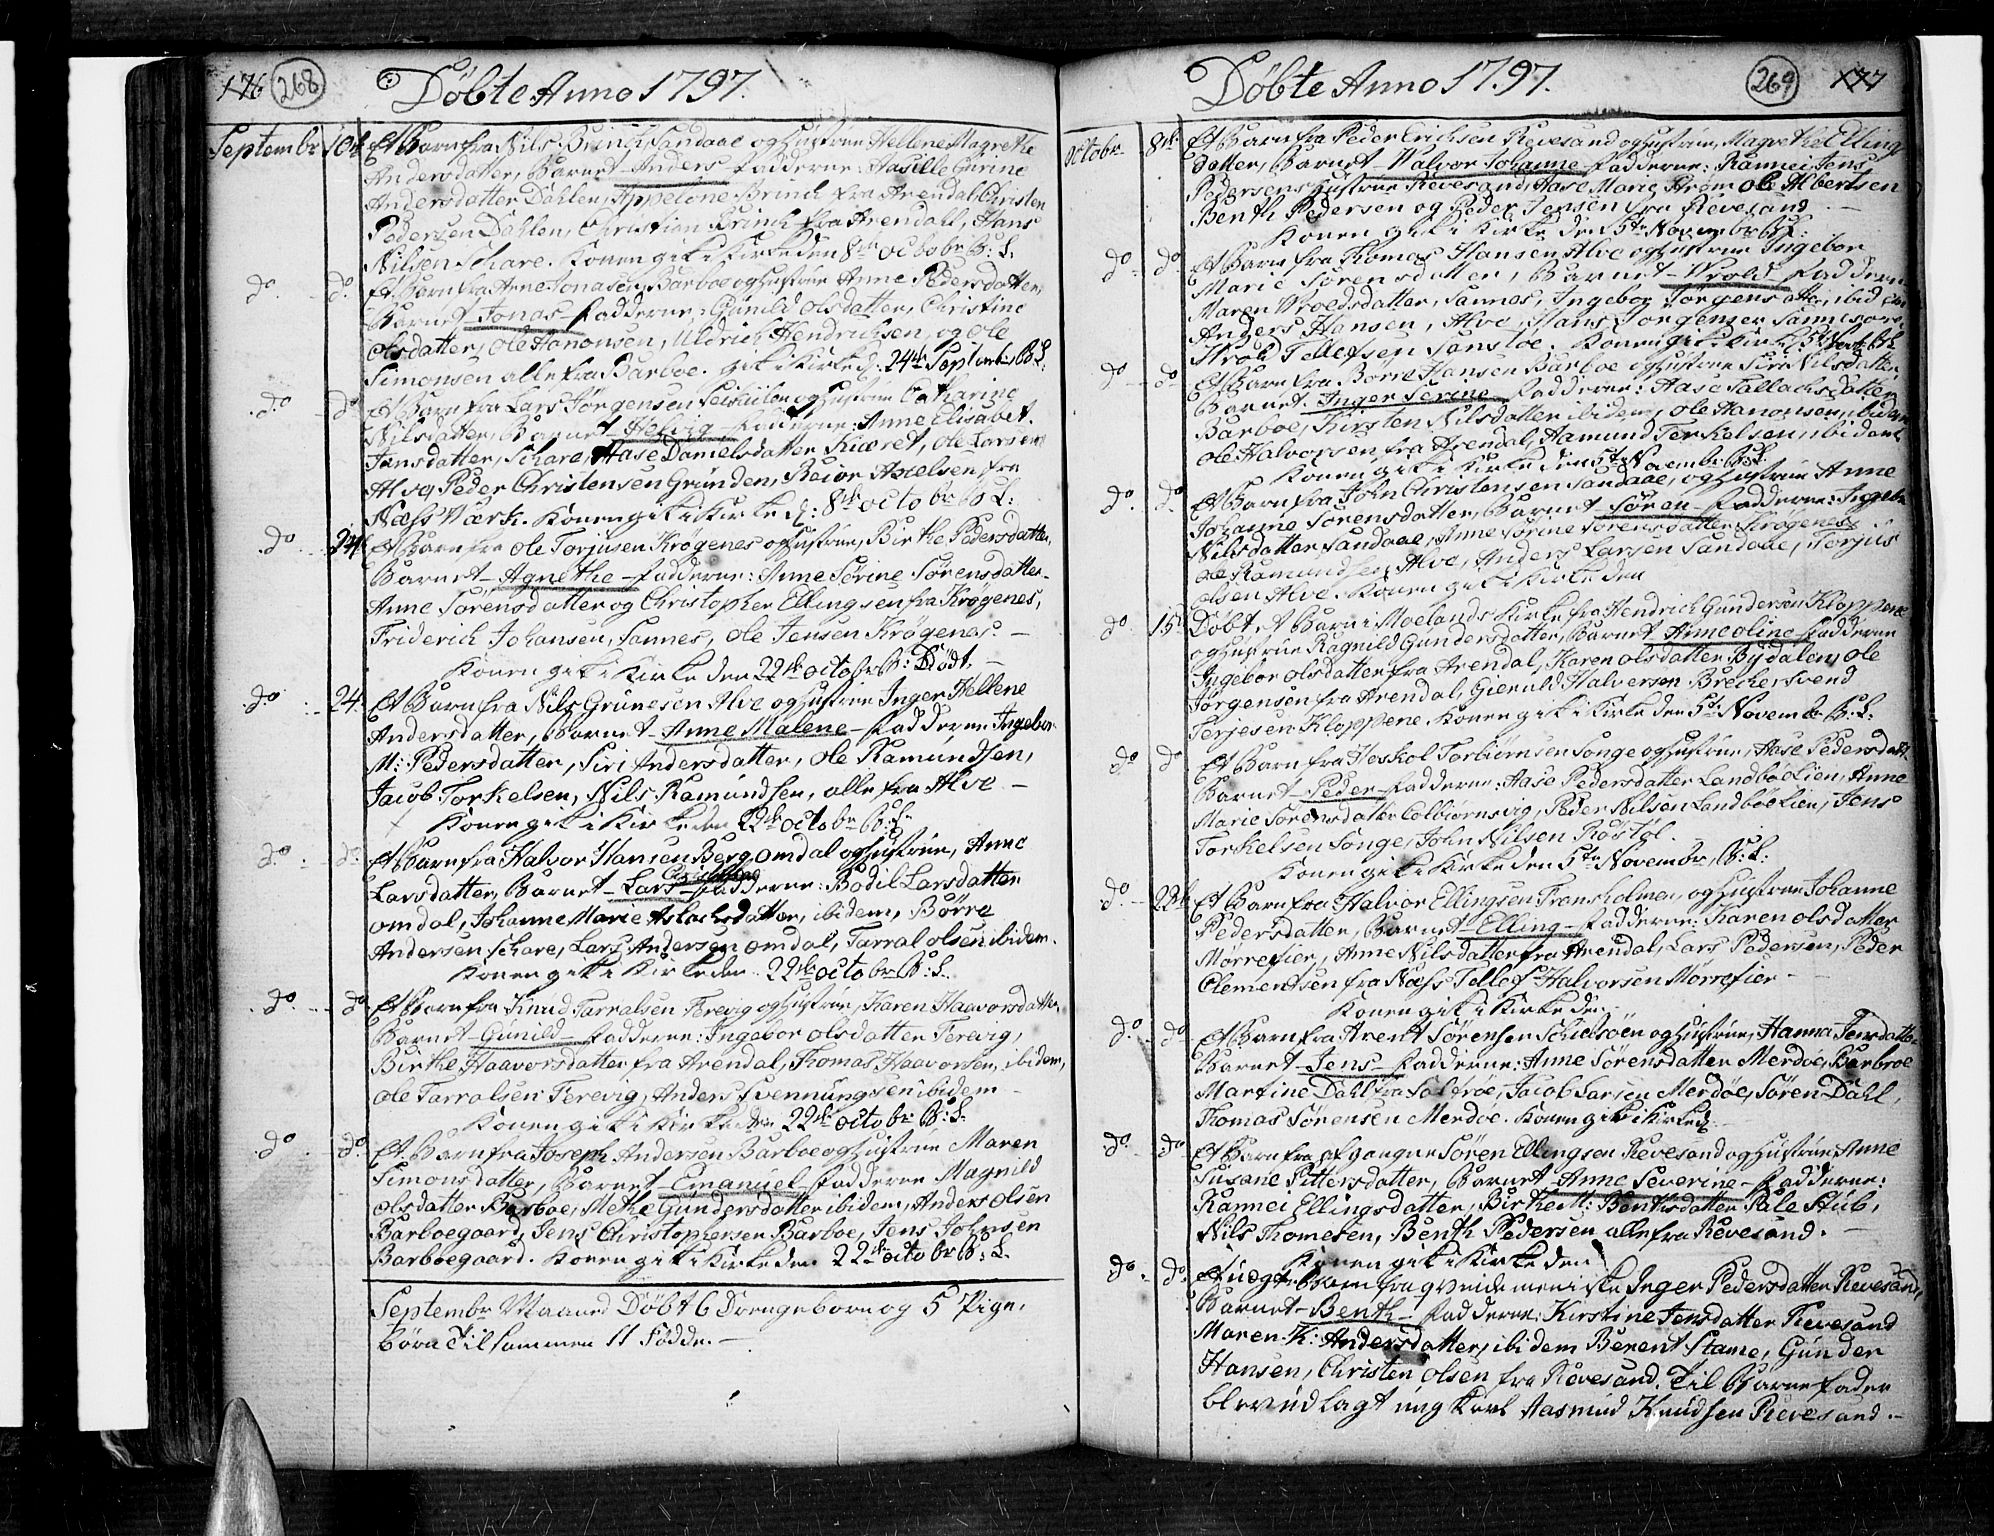 176 268 Döbte Anno 1797.
Septembr 10de Et Barn fra Nils Brinch Sandaae og Hustrue Hellene Magrethe
Andersdatter, Barnet Anders Fadderne: Gurine
Andersdatter Dahlen, Appelone Brinch fra Arendal, Christen
Pedersen Dahlen, Christien Brinch fra Arendahl, Hans
Nilsen Schare. Konen gik i Kirke den 8de octobr B: L.
do do Et Barn fra Arne Jonasen Barboe og Hustrue Anne Pedersdatter,
Barnet Jonas Fadderne, Gunild olsdatter, Christine
olsdatter, ole Aanonsen, Uldrich Hendrichsen, og ole
Simonsen alle fra Barboe. gik i Kirke d: 24de Septembr B: L.
do do Et Barn fra Lars Jørgensen og Hustrue Catharine
Nilsdatter, Barnet Helvig Fadderne: Anne Elisabet
Jensdatter, Schare, Aase Danielsdatter Kiæret, ole Larsen
Alve Peder Christensen Gründen, Reior Axelsen, fra
Næss Værk. Konen gik i Kirke d: 8de octobr B: L:
do 24 Et Barn fra ole Torjusen Krøgenes og Hustrue, Birthe Pedersdatter,
Barnet Agnethe Fadderne: Anne Sørine Sørensdatter
Anne Sørensdatter og Christopher Ellingsen fra Krøgenes,
Friderich Johansen, Sannes, ole Jensen Krøgenes.
Konen gik i Kirke den 22de octobr B: Dödt.
do 24. Et Barn fra Nils Grunesen Alve og Hustrue Inger Hellene
Andersdatter, Barnet Anne Malene Fadderne Ingebor
M: Pedersdatter, Siri Andersdatter, ole Ramundsen,
Jacob Torkelsen, Nils Ramundsen, alle fra Alve
Konen gik i Kirke den 22de octobr B: L.
do do Et Barn fra Halvor Hansen Berg omdal og Hustrue, Anne
Larsdatter, Barnet Lars Fadderne: Bodil Larsdatter
omdal, Johanne Marie Aslachsdatter, ibidem, Børre
Andersen Schare, Lars Andersen omdal, Tarral olsen ibidem.
Konen gik i Kirke den 22de octobr B: L.
do do Et Barn fra Knud Tarralsen Terevig og Hustrue, Karen Haavorsdatter,
Barnet Gunild Fadderne: Ingebor olsdatter Terevig,
Birthe Haavorsdatter fra Arendal, Thomas Haavorsen, ibidem,
ole Tarralsen Terevig, Anders Svennungsen ibidem
Konen gik i Kirke den 22de octobr B: L.
do do Et Barn fra Joseph Andersen Barboe og Hustrue Maren
Simonsdatter, Barnet Emanuel Fadderne Magnild
olsdatter Barboe, Methe Gundersdatter ibidem, Anders olsen
Barboegaard, Jens Christophersen Barboe, Jens Johnsen
Barboegaard. Konen gik i Kirke den 22de octobr B: L.
Septembr Maaned Döbt 6 Drengeborn og 5 Pige,
börn Tilsammen 11 Födde.
Döbte Anno 1797. 269 177
octobr 8de Et Barn fra Peder Erichsen Revesand og Hustrue, Magrethe Ellings
datter, Barnet Halvor Johanne Fadderne: Rannei Jens
Pedersens Hustrue Revesand, Aase Marie Strøm ole Albertsen
Benth Pedersen og Peder Jensen fra Revesand
Konen gik i Kirke den 5te Novembr B: L:
do do Et Barn fra Thomas Hansen Alve og Hustrue Ingebor
Marie Sørensdatter, Barnet Wrold Fadderne
Maren Wroldsdatter, Sannes, Ingebor Jørgensdatter, ibidem
Anders Hansen, Alve, Hans Jørgensen
Wrold Tellefsen Konen gik i Kirke 5te Novbr B: L
do do Et Barn fra Børre Hansen Barboe og Hustrue Siri Nilsdatter
Barnet Inger Serine Fadderne: Aase Tallachsdatter
Barboe, Kirsten Nilsdatter ibidem, ole Aanonsen, ibidem
ole Halvorsen fra Arendal, Aamund Terkelsen, ibidem
Konen gik i Kirke den 5te Novembr B: L
do do Et Barn fra John Christensen Sandaae, og Hustrue Anne
Johanne Sørensdatter, Barnet Søren Fadderne: Ingebor
Nilsdatter Sandaae, Anne Sørine Sørensdatter Krøgenes
ole Ramundsen Alve, Anders Larsen Sandaae, Torjus
olsen Alve. Konen gik i Kirke den
do 15. Döbt et Barn i Moelands Kirke fra Hendrich Gundersen Kloppene
og Hustrue Ragnild Gundersdatter, Barnet Anne oline Fadderne
Ingebor olsdatter fra Arendal, Karen olsdatter Bydalen, ole
Jørgensen fra Arendal, Gieruld Halversen Breche, Svend
Terjesen Kloppene. Konen gik i Kirke den 5te Novembr B: L:
do do Et Barn fra Hoskol Torbiørnsen Songe og Hustrue, Aase Pedersdatt.
Barnet Peder Fadderne: Aase Pedersdatter Landbøe Lien, Anne
Marie Sørensdatter Colbiørnsvig, Peder Nilsen Landbøe Lien, Jens
Torkelsen Songe, John Nilsen Røstøl.
Konen gik i Kirke den 5te Novembr, B: L:
do 22de Et Barn fra Halvor Ellingsen Tromholmen, og Hustrue Johanne
Pedersdatter, Barnet Elling Fadderne: Karen olsdatter
Mørrefier, Anne Nilsdatter fra Arendal, Lars Pedersen, Peder
Clementsen fra Næss Tellef Halvorsen Mørrefier
Konen gik i Kirke den
do do Et Barn fra Arent Sørensen Schielsöen og Hustrue, Hanna Jensdatter
Barnet Jens Fadderne: Anne Sørensdatter Merdøe, Barbroe
Martine Dahl fra Jacob Larsen Merdøe, Søren Dahl,
Thomas Sørensen Merdoe. Konen gik i Kirke d:
do do Et Barn fra afgangne Søren Ellingsen Revesand og Hustrue Anne
Susane Pittersdatter, Barnet Anne Severine Fadderne:
Rannei Ellingsdatter, Birthe M: Benthsdatter Pale Stub,
Nils Thomesen, Benth Pedersen alle fra Revesand.
Konen gik i Kirke den
do do Et uægte Barn fra qvindemenniske Inger Pedersdatter Revesand,
Barnet Benth Fadderne: Kirstine Jensdatter Revesand
Maren K: Andersdatter, ibidem Berent Stame, Gunder
Hansen, Christen olsen fra Revesand. Til Barnefader
blev udlagt ung Karl Aasmund Knudsen Revesand.